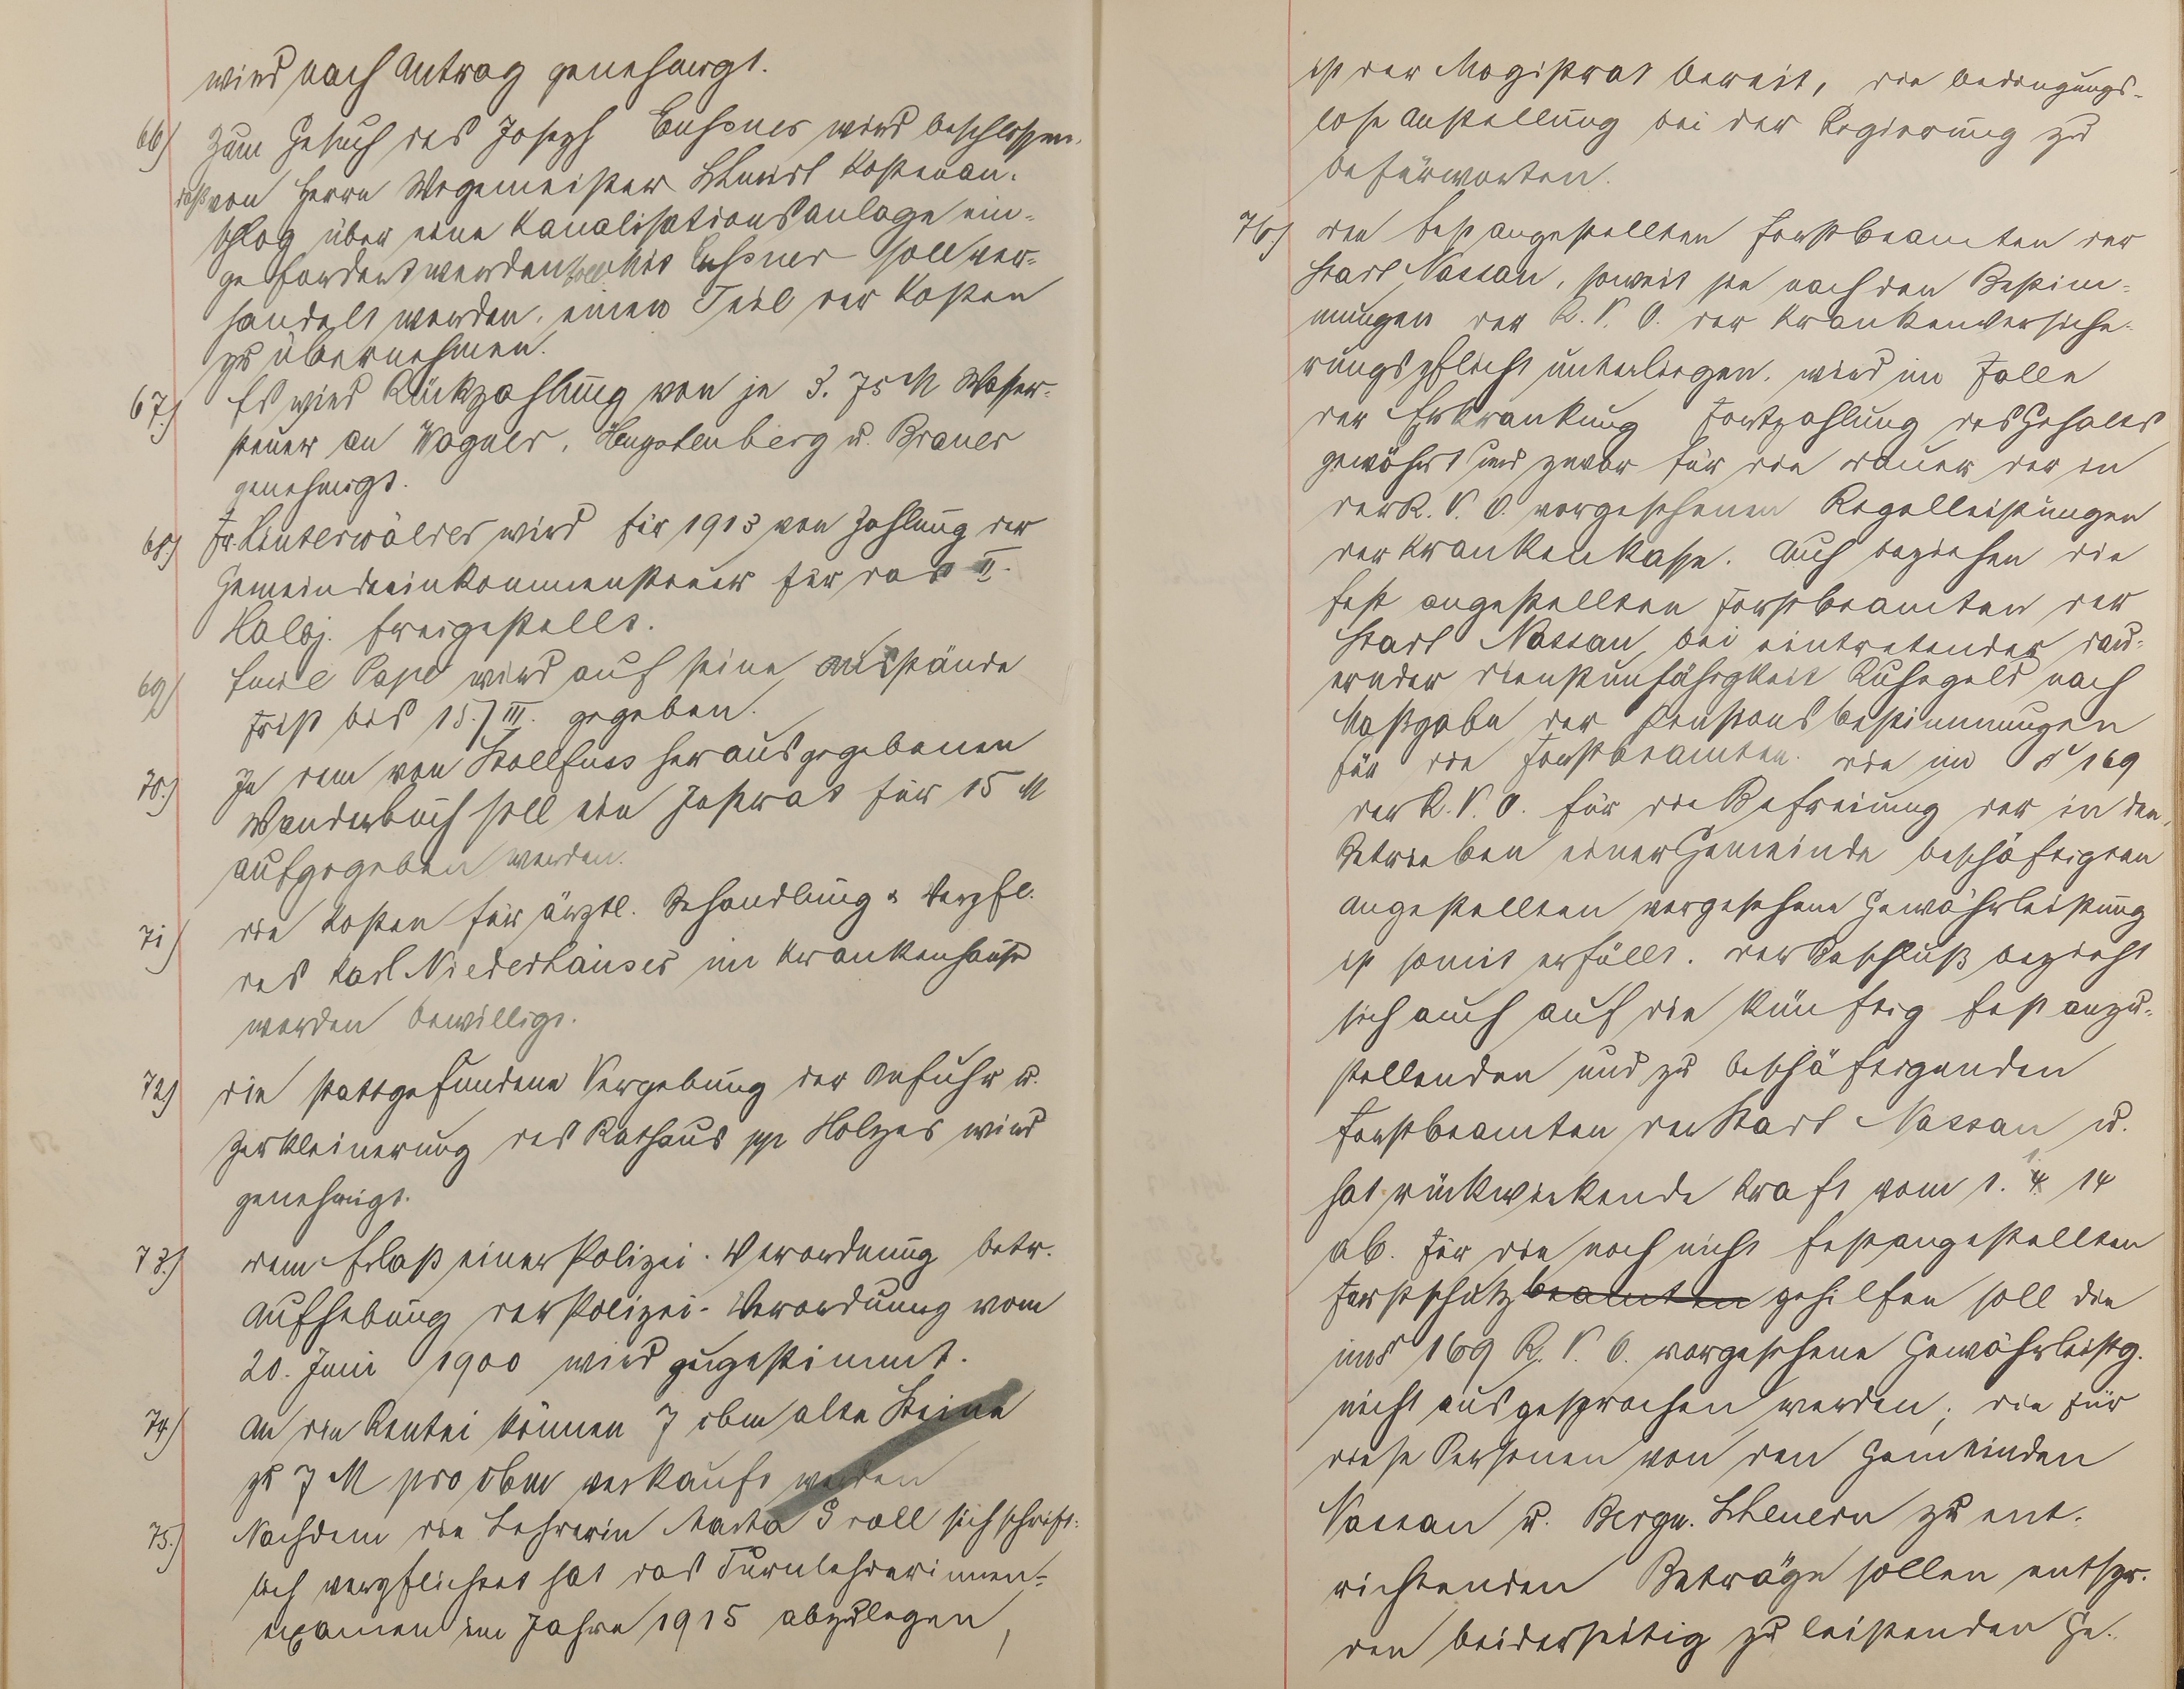 wird nach Antrag genehmigt.
66) Zum Gesuch des Joseph Buchsner wird beschlossen,
daß von Herrn Wegemeister Kostenan-
schlag über eine Kanalisationsanlage ein-
gefordert werden soll. Mit soll ver-
handelt werden, einen Teil der Kosten
zu übernehmen.
67.) Es wird Rückzahlung von je 3.75 M Wasser-
steuer an Wagner, Hengstenberg u. Braner
genehmigt.
68.) Fr. Linterwälder wird für 1913 von Zahlung der
Gemeindeeinkommensteuer für das II.
Halbj. freigestellt.
69) Emil Pape wird auf seine Ausstände
Frist bis 15./III. gegeben.
70.) In dem von Stollfuss herausgegebenen
Wanderbuch soll ein Inserat für 15 M
aufgegeben werden.
71) Die Kosten für ärztl. Behandlung u. Verpfl.
des Karl Niederhäuser im Krankenhause
werden bewilligt.
72) Die stattgefundene Vergebung der Anfuhr u.
Zerkleinerung des Rathaus pp Holzes wird
genehmigt.
73.) Dem Erlaß einer Polizei-Verordnung betr.
Aufhebung der Polizei-Verordnung vom
20. Juni 1900 wird zugestimmt.
74.) An die Rentei können 7 cbm alte Steine
zu 7 M pro cbm verkauft werden
75.) Nachdem die Lehrerin Marta Groll sich schrift-
lich verpflichtet hat das Turnlehrerinnen-
examen im Jahre 1915 abzulegen,
ist der Magistrat bereit, die bedingungs-
lose Anstellung bei der Regierung zu
befürworten.
76.) Den fest angestellten Forstbeamten der
Stadt Nassau, soweit sie nach den Bestim-
mungen der R.V.O. der Krankenversiche-
rungspflicht unterliegen, wird im Falle
der Erkrankung Fortzahlung des Gehaltes
gewährt und zwar für die Dauer der in
der R.V.O. vorgesehenen Regelleistungen
der Krankenkasse. Auch beziehen die
fest angestellten Forstbeamten der
Stadt Nassau bei eintretender dau-
ernder Dienstunfähigkeit Ruhegeld nach
Maßgabe der Pensionsbestimmungen
für die Forstbeamten. Die im § 169
der R.V.O. für die Befreiung der in den
Betrieben einer Gemeinde beschäftigten
Angestellten vorgesehene Gewährleistung
ist somit erfüllt. Der Beschluß bezieht
sich auch auf die künftig fest anzu-
stellenden und zu beschäftigenden
Forstbeamten der Stadt Nassau u.
hat rückwirkende Kraft vom 1. 1. 14
ab. Für die noch nicht festangestellten
Forstschutzbeamten gehilfen soll die
im § 169 R.V.O. vorgesehene Gewährleistg.
nicht ausgesprochen werden; die für
diese Personen von den Gemeinden
Nassau u. Bergn. Scheuern zu ent-
richtenden Beträge sollen entspr.
den beiderseitig zu leistenden Ge-